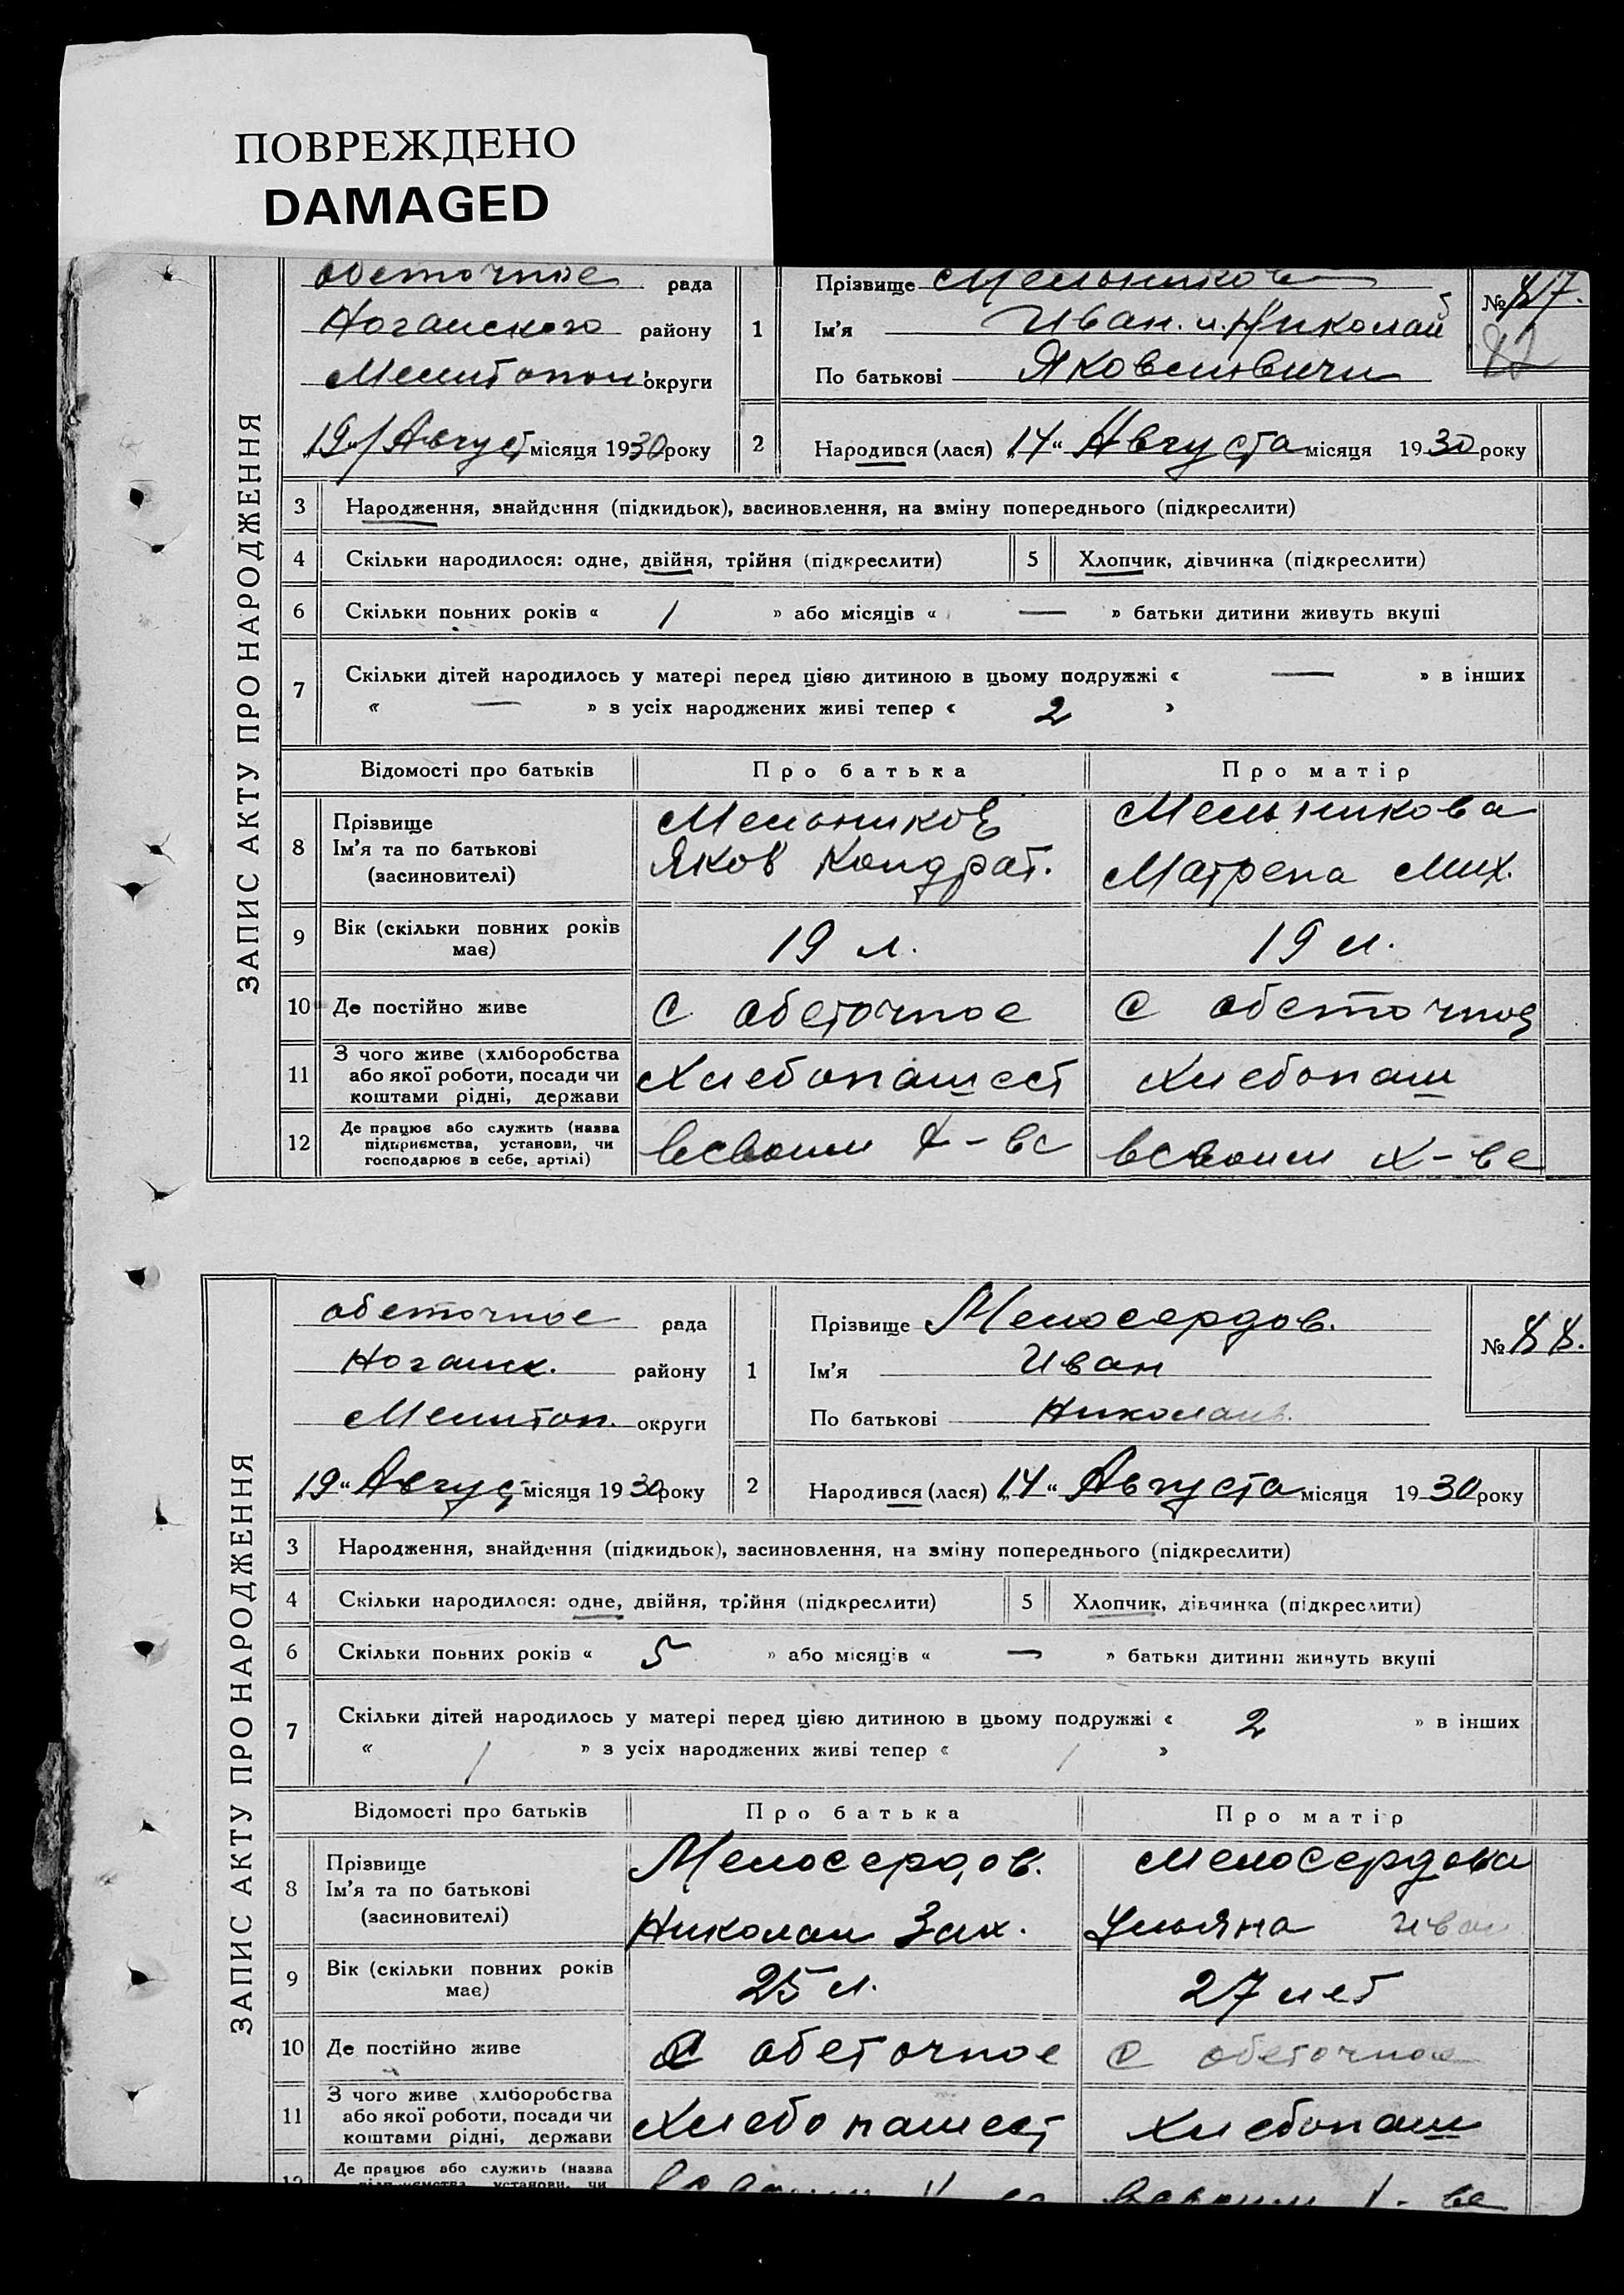 ПОВРЕЖДЕНО
DAMAGED
ЗАПИС АКТУ ПРО НАРОДЖЕННЯ
обеточное рада
Ногайского району
Мелитопол. округи
19 Август місяця 1930 року
1 Прізвище Мельников
Ім'я Иван и Николай
По батькові Яковлевичи
№ 87.
2 Народився (лася) „14“ Августа місяця 1930 року
3 Народження, знайдення (підкидьок), засиновлення, на зміну попереднього (підкреслити)
4 Скільки народилося: одне, двійня, трійня (підкреслити) 5 Хлопчик, дівчинка (підкреслити)
6 Скільки повних років « 1 » або місяців « — » батьки дитини живуть вкупі
7 Скільки дітей народилось у матері перед цією дитиною в цьому подружжі « — » в інших
« — » з усіх народжених живі тепер « 2 »
Відомості про батьків Про батька Про матір
8 Прізвище Мельников Мельникова
Ім'я та по батькові Яков Кондрат. Матрена Мих.
(засиновителі)
9 Вік (скільки повних років має) 19 л. 19 л.
10 Де постійно живе С обеточное С обеточное
11 З чого живе (хліборобства
або якої роботи, посади чи
коштами рідні, держави Хлебопашест Хлебопаш
12 Де працює або служить (назва
підприємства, установи, чи
господарює в себе, артілі) всвоим х-ве всвоим х-ве
ЗАПИС АКТУ ПРО НАРОДЖЕННЯ
обеточное рада
Ногайск. району
Мелитоп. округи
19 „ Август місяця 1930 року
1 Прізвище Мелосердов.
Ім'я Иван
По батькові Николаив.
№ 88.
2 Народився (лася) „14“ Августа місяця 1930 року
3 Народження, знайдення (підкидьок), засиновлення, на зміну попереднього (підкреслити)
4 Скільки народилося: одне, двійня, трійня (підкреслити) 5 Хлопчик, дівчинка (підкреслити)
6 Скільки повних років « 5 » або місяців « — » батьки дитини живуть вкупі
7 Скільки дітей народилось у матері перед цією дитиною в цьому подружжі « 2 » в інших
« / » з усіх народжених живі тепер « / »
Відомості про батьків Про батька Про матір
8 Прізвище Мелосердов. Мелосердова
Ім'я та по батькові Николай Зах. Ульяна Иван
(засиновителі)
9 Вік (скільки повних років має) 25 л. 27 лет
10 Де постійно живе С обеточное С обеточное
11 З чого живе хліборобства
або якої роботи, посади чи
коштами рідні, держави Хлебопашест Хлебопаш
12 Де працює або служить (назва
підприємства, установи, чи всвоим х-ве всвоим х-ве